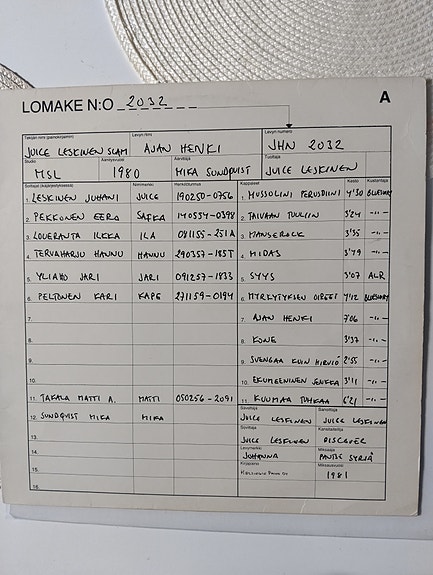 LOMAKE N:O 2032 A
Tekijän nimi (painokirjaimin) Levyn nimi Levyn numero
JUICE LESKINEN SLAM AJAN HENKI JHN 2032
Studio Äänitysvuosi Äänittäjä Tuottaja
MSL 1980 MIKA SUNDQVIST JUICE LESKINEN
Soittajat (käyrjestyksessä) Nimimerkki Henkilötunnus Kappaleet Kesto Kustantaja
1. LESKINEN JUHANI JUICE 190250-0756 1. MUSSOLINI PERUSDIINI 4'30 BLUEBART
2. PEKKONEN EERO SAFKA 140554-0398 2. TAIVAAN TUULIIN 3'24 -"-
3. LOUERANTA ILKKA ILA 081155-251A 3. MANSEROCK 3'35 -"-
4. TERVAHARJU HANNU HANNU 290357-185T 4. MIDAS 3'49 -"-
5. YLIAHO JARI JARI 091257-1833 5. SYYS 3'07 ALR
6. PELTONEN KARI KAPE 271159-0194 6. MYRKYTYKSEN OIREET 4'12 BLUEBART
7. 7. AJAN HENKI 7'06 -"-
8. 8. KONE 3'37 -"-
9. 9. SVENGAA KUIN HIRVIÖ 2'55 -"-
10. 10. EKUMEENINEN JENKKA 3'11 -"-
11. TAKALA MATTI A. MATTI 050256-2091 11. KUUMAA TUHKAA 6'21 -"-
12. SUNDQVIST MIKA MIKA
Säveltäjä Sanoittaja
JUICE LESKINEN JUICE LESKINEN
13.
Sovittaja Kansitaiteilija
JUICE LESKINEN DISCOVER
14.
Levymerkki Miksaaja
JOHANNA PANTSE SYRJÄ
15.
Kirjapaino Miksausvuosi
HELSINGIN PAINO OY 1981
16.